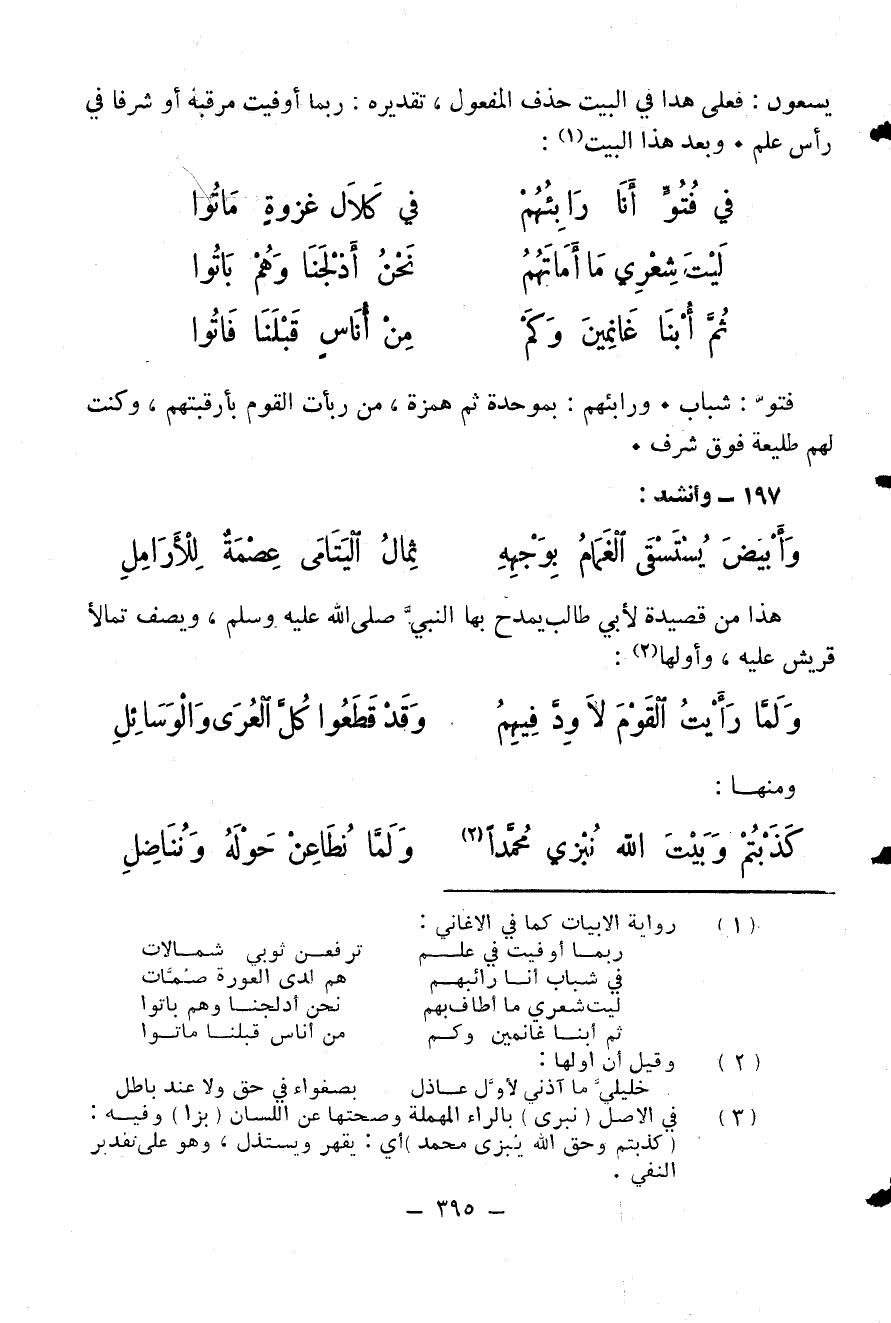 يسعون : فعلى هدا في البيت حذف المفعول ، تقديره : ربما أوفيت مرقبة أو شرفا في
رأس علم • وبعد هذا البيت(١) :
في فُتُوٍّ أَنَا رَابِئُهُمْ في كَلاَلِ غزوةٍ مَاتُوا
لَيْتَ شِعْرِي مَا أَمَاتَهُمُ نَحْنُ أَدْلَجْنَا وَهُمْ بَاتُوا
ثُمَّ أُبْنَا غَانِمِينَ وَكَمْ مِنْ أُنَاسٍ قَبْلَنَا فَاتُوا
فتوّ : شباب • ورابئهم : بموحدة ثم همزة ، من ربأت القوم بأرقبتهم ، وكنت
لهم طليعة فوق شرف •
١٩٧ – وأنشد :
وَأَبْيَضَ يُسْتَسْقَى ٱلْغَمَامُ بِوَجْهِهِ ثِمالُ ٱليَتَامَى عِصْمَةٌ لِلْأَرَامِلِ
هذا من قصيدة لأبي طالب يمدح بها النبيَّ صلى الله عليه وسلم ، ويصف تمالأ
قريش عليه ، وأولها(٢) :
وَلَمَّا رَأَيْتُ ٱلْقَوْمَ لاَ وِدَّ فِيهِمُ وَقَدْ قَطَعُوا كُلَّ ٱلْعُرَى وَالْوَسَائِلِ
ومنهـا :
كَذَبْتُمْ وَبَيْتَ الله نُبْزي مُحَمَّداً(٢) وَلَمَّا نُطَاعِنْ حَوْلَهُ وَنُنَاضِلِ
(١) رواية الابيات كما في الاغاني :
ربمـا أوفيت في علـم ترفعـن ثوبي شمـالات
في شباب أنـا رائبهـم هم لدى العورة صمَّات
ليت شعري ما أطاف بهم نحن أدلجنـا وهم باتوا
ثم أبنـا غانمين وكـم من أناس قبلنـا ماتـوا
(٢) وقيل أن أولها :
خليليَّ ما آذني لأوَّل عـاذل بصفواء في حق ولا عند باطل
(٣) في الاصل (نبرى) بالراء المهملة وصحتها عن اللسان (بزا) وفيـه :
(كذبتم وحق الله يُبزى محمد) أي : يقهر ويستذل ، وهو على نقدير
النفي .
– ٣٩٥ –